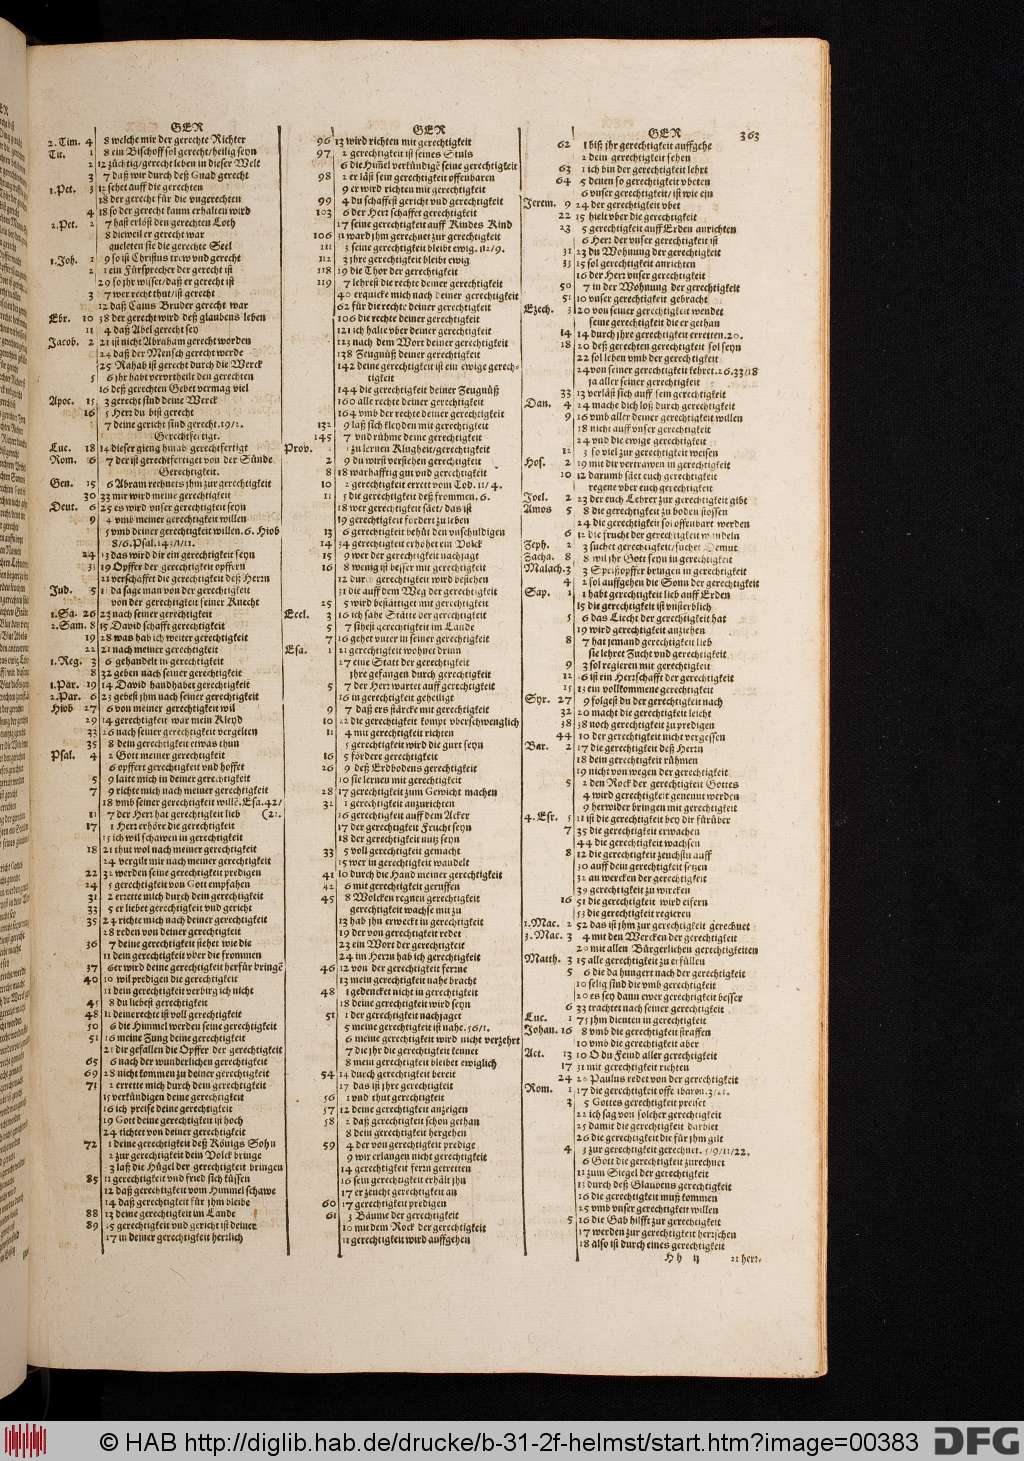 GER
2. Tim. 4 8 welche mir der gerechte Richter
Tit. 1 8 ein Bischoff sol gerecht/heilig seyn
2 12 züchtig/gerecht leben in dieser Welt
3 7 daß wir durch deß Gnad gerecht
1. Pet. 3 12 sehet auff die gerechten
18 der gerecht für die vngerechten
4 18 so der gerecht kaum erhalten wird
2. Pet. 2 7 hast erlöst den gerechten Loth
8 dieweil er gerecht war
queleten sie die gerechte Seel
1. Joh. 1 9 so ist Christus trew vnd gerecht
2 1 ein Fürsprecher der gerecht ist
29 so jhr wisset/daß er gerecht ist
3 7 wer recht thut/ist gerecht
12 daß Cains Bruder gerecht war
Ebr. 10 38 der gerecht wird deß glaubens leben
11 4 daß Abel gerecht sey
Jacob. 2 21 ist nicht Abraham gerecht worden
24 daß der Mensch gerecht werde
25 Rahab ist gerecht durch die Werck
5 6 jhr habt vervrtheilt den gerechten
16 deß gerechten Gebet vermag viel
Apoc. 15 3 gerecht sind deine Werck
16 5 Herr du bist gerecht
7 deine gericht sind gerecht. 19/2.
Gerechtfertigt.
Luc. 18 14 dieser gieng hinab gerechtfertigt
Rom. 6 7 der ist gerechtfertiget von der Sünde
Gerechtigkeit.
Gen. 15 6 Abram rechnets jhm zur gerechtigkeit
30 33 mir wird meine gerechtigkeit
Deut. 6 25 es wird vnser gerechtigkeit seyn
9 4 vmb meiner gerechtigkeit willen
5 vmb deiner gerechtigkeit willen. 6. Hiob
8/6. Psal. 14 /1/11.
24 13 das wird dir ein gerechtigkeit seyn
31 19 Opffer der gerechtigkeit opffern
21 verschaffet die gerechtigkeit deß Herrn
Jud. 5 11 da sage man von der gerechtigkeit
von der gerechtigkeit seiner Knecht
1. Sa. 26 23 nach seiner gerechtigkeit
2. Sam. 8 15 David schafft gerechtigkeit
19 28 was hab ich weiter gerechtigkeit
22 21 nach meiner gerechtigkeit
1. Reg. 3 6 gehandelt in gerechtigkeit
8 32 geben nach seiner gerechtigkeit
1. Par. 19 14 David handhabet gerechtigkeit
2. Par. 6 23 gebest jhm nach seiner gerechtigkeit
Hiob 27 6 von meiner gerechtigkeit wil
29 14 gerechtigkeit war mein Kleyd
33 26 nach seiner gerechtigkeit vergelten
35 8 dein gerechtigkeit etwas thun
Psal. 4 2 Gott meiner gerechtigkeit
6 opffert gerechtigkeit vnd hoffet
5 9 laite mich in deiner gerechtigkeit
7 9 richte mich nach meiner gerechtigkeit
18 vmb seiner gerechtigkeit willē. Esa. 42/
11 7 der Herr hat gerechtigkeit lieb (21.
17 1 Herr erhöre die gerechtigkeit
15 ich wil schawen in gerechtigkeit
18 21 thut wol nach meiner gerechtigkeit
24 vergilt mir nach meiner gerechtigkeit
22 32 werden seine gerechtigkeit predigen
24 5 gerechtigkeit von Gott empfahen
31 2 errette mich durch dein gerechtigkeit
33 5 er liebet gerechtigkeit vnd gericht
35 24 richte mich nach deiner gerechtigkeit
28 reden von deiner gerechtigkeit
36 7 deine gerechtigkeit stehet wie die
11 dein gerechtigkeit vber die frommen
37 6 er wird deine gerechtigkeit herfür bringē
40 10 wil predigen die gerechtigkeit
11 dein gerechtigkeit verbirg ich nicht
45 8 du liebest gerechtigkeit
48 11 deine rechte ist voll gerechtigkeit
50 6 die Himmel werden seine gerechtigkeit
51 16 meine Zung deine gerechtigkeit
21 dir gefallen die Opffer der gerechtigkeit
65 6 nach der wunderlichen gerechtigkeit
69 28 nicht kommen zu deiner gerechtigkeit
71 2 errette mich durch dein gerechtigkeit
15 verkündigen deine gerechtigkeit
16 ich preise deine gerechtigkeit
19 Gott deine gerechtigkeit ist hoch
24 tichtet von deiner gerechtigkeit
72 1 deine gerechtigkeit deß Königs Sohn
2 zur gerechtigkeit dein Volck bringe
3 laß die Hügel der gerechtigkeit bringen
85 11 gerechtigkeit vnd fried sich küssen
12 daß gerechtigkeit vom Himmel schawe
14 daß gerechtigkeit für jhm bleibe
88 13 deine gerechtigkeit im Lande
89 15 gerechtigkeit vnd gericht ist deines
17 in deiner gerechtigkeit herrlich
GER
96 13 wird richten mit gerechtigkeit
97 2 gerechtigkeit ist seines Stuls
6 die Him̄el verkündigē seine gerechtigkeit
98 2 er läst sein gerechtigkeit offenbaren
9 er wird richten mit gerechtigkeit
99 4 du schaffest gericht vnd gerechtigkeit
103 6 der Herr schaffet gerechtigkeit
17 seine gerechtigkeit auff Kindes Kind
106 31 ward jhm gerechnet zur gerechtigkeit
111 3 seine gerechtigkeit bleibt ewig. 112/9.
112 3 jhre gerechtigkeit bleibt ewig
118 19 die Thor der gerechtigkeit
119 7 lehrest die rechte deiner gerechtigkeit
40 erquicke mich nach deiner gerechtigkeit
62 für die rechte deiner gerechtigkeit
106 die rechte deiner gerechtigkeit
121 ich halte vber deiner gerechtigkeit
123 nach dem Wort deiner gerechtigkeit
138 Zeugnüß deiner gerechtigkeit
142 deine gerechtigkeit ist ein ewige gerech-
tigkeit
144 die gerechtigkeit deiner Zeugnüß
160 alle rechte deiner gerechtigkeit
164 vmb der rechte deiner gerechtigkeit
132 9 laß sich kleyden mit gerechtigkeit
145 7 vnd rühme deine gerechtigkeit
Prov. 1 zu lernen Klugheit/gerechtigkeit
2 9 du wirst verstehen gerechtigkeit
8 18 warhafftig gut vnd gerechtigkeit
10 2 gerechtigkeit errett vom Tod. 11/4.
11 5 die gerechtigkeit deß frommen. 6.
18 wer gerechtigkeit säet/ das ist
19 gerechtigkeit fordert zu leben
13 6 gerechtigkeit behüt den vnschuldigen
14 34 gerechtigkeit erhöhet ein Volck
15 9 wer der gerechtigkeit nachjagt
16 8 wenig ist besser mit gerechtigkeit
12 durch gerechtigkeit wird bestehen
31 die auff dem Weg der gerechtigkeit
25 5 wird bestättiget mit gerechtigkeit
Eccl. 3 16 ich sahe Stätte der gerechtigkeit
5 7 sihest gerechtigkeit im Lande
7 16 gehet vnter in seiner gerechtigkeit
Esa. 1 21 gerechtigkeit wohnet drinn
27 eine Statt der gerechtigkeit
jhre gefangen durch gerechtigkeit
5 7 der Herr wartet auff gerechtigkeit
16 in gerechtigkeit geheiligt
9 7 daß ers stärcke mit gerechtigkeit
10 22 die gerechtigkeit kompt vberschwenglich
11 4 mit gerechtigkeit richten
5 gerechtigkeit wird die gurt seyn
16 5 fördere gerechtigkeit
26 9 deß Erdbodens gerechtigkeit
10 sie lernen mit gerechtigkeit
28 17 gerechtigkeit zum Gewicht machen
32 1 gerechtigkeit anzurichten
16 gerechtigkeit auff dem Acker
17 der gerechtigkeit Frucht seyn
18 der gerechtigkeit nutz seyn
33 5 voll gerechtigkeit gemacht
15 wer in gerechtigkeit wandelt
41 10 durch die Hand meiner gerechtigkeit
42 6 mit gerechtigkeit geruffen
45 8 Wolcken regnen gerechtigkeit
gerechtigkeit wachse mit zu
13 hab jhn erweckt in gerechtigkeit
19 der von gerechtigkeit redet
23 ein Wort der gerechtigkeit
24 im Herrn hab ich gerechtigkeit
46 12 von der gerechtigkeit ferrne
13 mein gerechtigkeit nahe bracht
48 1 gedencket nicht in gerechtigkeit
18 deine gerechtigkeit wird seyn
51 1 der gerechtigkeit nachjaget
5 meine gerechtigkeit ist nahe. 56/1.
6 meine gerechtigkeit wird nicht verzehrt
7 die jhr die gerechtigkeit kennet
8 mein gerechtigkeit bleibet ewiglich
54 14 durch gerechtigkeit bereit
17 das ist jhre gerechtigkeit
56 1 vnd thut gerechtigkeit
57 12 deine gerechtigkeit anzeigen
58 2 daß gerechtigkeit schon gethan
8 dein gerechtigkeit hergehen
59 4 der von gerechtigkeit predige
9 wir erlangen nicht gerechtigkeit
14 gerechtigkeit fern getretten
16 sein gerechtigkeit erhält jhn
17 er zeucht gerechtigkeit an
60 17 gerechtigkeit predigen
61 3 Bäume der gerechtigkeit
10 mit dem Rock der gerechtigkeit
11 gerechtigkeit wird auffgehen
GER 363
62 1 biß jhr gerechtigkeit auffgehe
2 dein gerechtigkeit sehen
63 1 ich bin der gerechtigkeit lehrt
64 5 denen so gerechtigkeit vbeten
6 vnser gerechtigkeit/ ist wie ein
Jerem. 9 24 der gerechtigkeit vbet
22 15 hielt vber die gerechtigkeit
23 5 gerechtigkeit auff Erden anrichten
6 Herr der vnser gerechtigkeit ist
31 23 du Wohnung der gerechtigkeit
33 15 sol gerechtigkeit anrichten
16 der Herr vnser gerechtigkeit
50 7 in der Wohnung der gerechtigkeit
51 10 vnser gerechtigkeit gebracht
Ezech. 3 20 von seiner gerechtigkeit wendet
seine gerechtigkeit die er gethan
14 14 durch jhre gerechtigkeit erretten. 20.
18 20 deß gerechten gerechtigkeit sol seyn
22 sol leben vmb der gerechtigkeit
24 von seiner gerechtigkeit kehret. 26. 33/18
ja aller seiner gerechtigkeit
33 13 verläst sich auff sein gerechtigkeit
Dan. 4 24 mache dich loß durch gerechtigkeit
9 16 vmb aller deiner gerechtigkeit willen
18 nicht auff vnser gerechtigkeit
24 vnd die ewige gerechtigkeit
12 3 so viel zur gerechtigkeit weisen
Hos. 2 19 mit dir vertrawen in gerechtigkeit
10 12 darumb säet euch gerechtigkeit
regene vber euch gerechtigkeit
Joel. 2 23 der euch Lehrer zur gerechtigkeit gibt
Amos 5 8 die gerechtigkeit zu boden stossen
24 die gerechtigkeit sol offenbart werden
6 12 die frucht der gerechtigkeit wandeln
Zeph. 2 3 suchet gerechtigkeit/suchet Demut
Zacha. 8 8 wil jhr Gott seyn in gerechtigkeit
Malach. 3 3 Speißopffer bringen in gerechtigkeit
4 2 sol auffgehen die Sonn der gerechtigkeit
Sap. 1 1 habt gerechtigkeit lieb auff Erden
15 die gerechtigkeit ist vnsterblich
5 6 das Liecht der gerechtigkeit hat
19 wird gerechtigkeit anziehen
8 7 hat jemand gerechtigkeit lieb
sie lehret Zucht vnd gerechtigkeit
9 3 sol regieren mit gerechtigkeit
12 16 ist ein Herrschafft der gerechtigkeit
15 13 ein vollkommene gerechtigkeit
Syr. 27 9 folgest du der gerechtigkeit nach
32 20 macht die gerechtigkeit leicht
38 38 noch gerechtigkeit zu predigen
44 10 der gerechtigkeit nicht vergessen
Bar. 2 17 die gerechtigkeit deß Herrn
18 dein gerechtigkeit rühmen
19 nicht von wegen der gerechtigkeit
5 2 den Rock der gerechtigkeit Gottes
4 wird gerechtigkeit genennt werden
9 herwider bringen mit gerechtigkeit
4. Esr. 5 11 ist die gerechtigkeit bey dir fürüber
7 35 die gerechtigkeit erwachen
44 die gerechtigkeit wachsen
8 12 die gerechtigkeit zeuchstu auff
30 auff dein gerechtigkeit setzen
32 an wercken der gerechtigkeit
39 gerechtigkeit zu wircken
16 51 die gerechtigkeit wird eifern
53 die gerechtigkeit regieren
1. Mac. 2 52 das ist jhm zur gerechtigkeit gerechnet
3. Mac. 3 4 mit den Wercken der gerechtigkeit
20 mit allen Bürgerlichen gerechtigkeiten
Matth. 3 15 alle gerechtigkeit zu erfüllen
5 6 die da hungert nach der gerechtigkeit
10 selig sind die vmb gerechtigkeit
20 es sey dann ewer gerechtigkeit besser
6 33 trachtet nach seiner gerechtigkeit
Luc. 1 75 jhm dienten in gerechtigkeit
Johan. 16 8 vmb die gerechtigkeit straffen
10 vmb die gerechtigkeit aber
Act. 13 10 O du Feind aller gerechtigkeit
17 31 mit gerechtigkeit richten
24 26 Paulus redet von der gerechtigkeit
Rom. 1 17 die gerechtigkeit offenbaron. 3/21.
3 5 Gottes gerechtigkeit preiset
22 ich sag von solcher gerechtigkeit
25 damit die gerechtigkeit darbiet
26 die gerechtigkeit die für jhm gilt
4 3 zur gerechtigkeit gerechnet. 5/9/11/22.
6 Gott die gerechtigkeit zurechnet
11 zum Siegel der gerechtigkeit
13 durch deß Glaubens gerechtigkeit
16 die gerechtigkeit muß kommen
25 vmb vnser gerechtigkeit willen
5 16 die Gab hilfft zur gerechtigkeit
17 werden zur gerechtigkeit herrschen
18 also ist durch eines gerechtigkeit
Hh ij 21 herr-
© HAB http://diglib.hab.de/drucke/b-31-2f-helmst/start.htm?image=00383
DFG